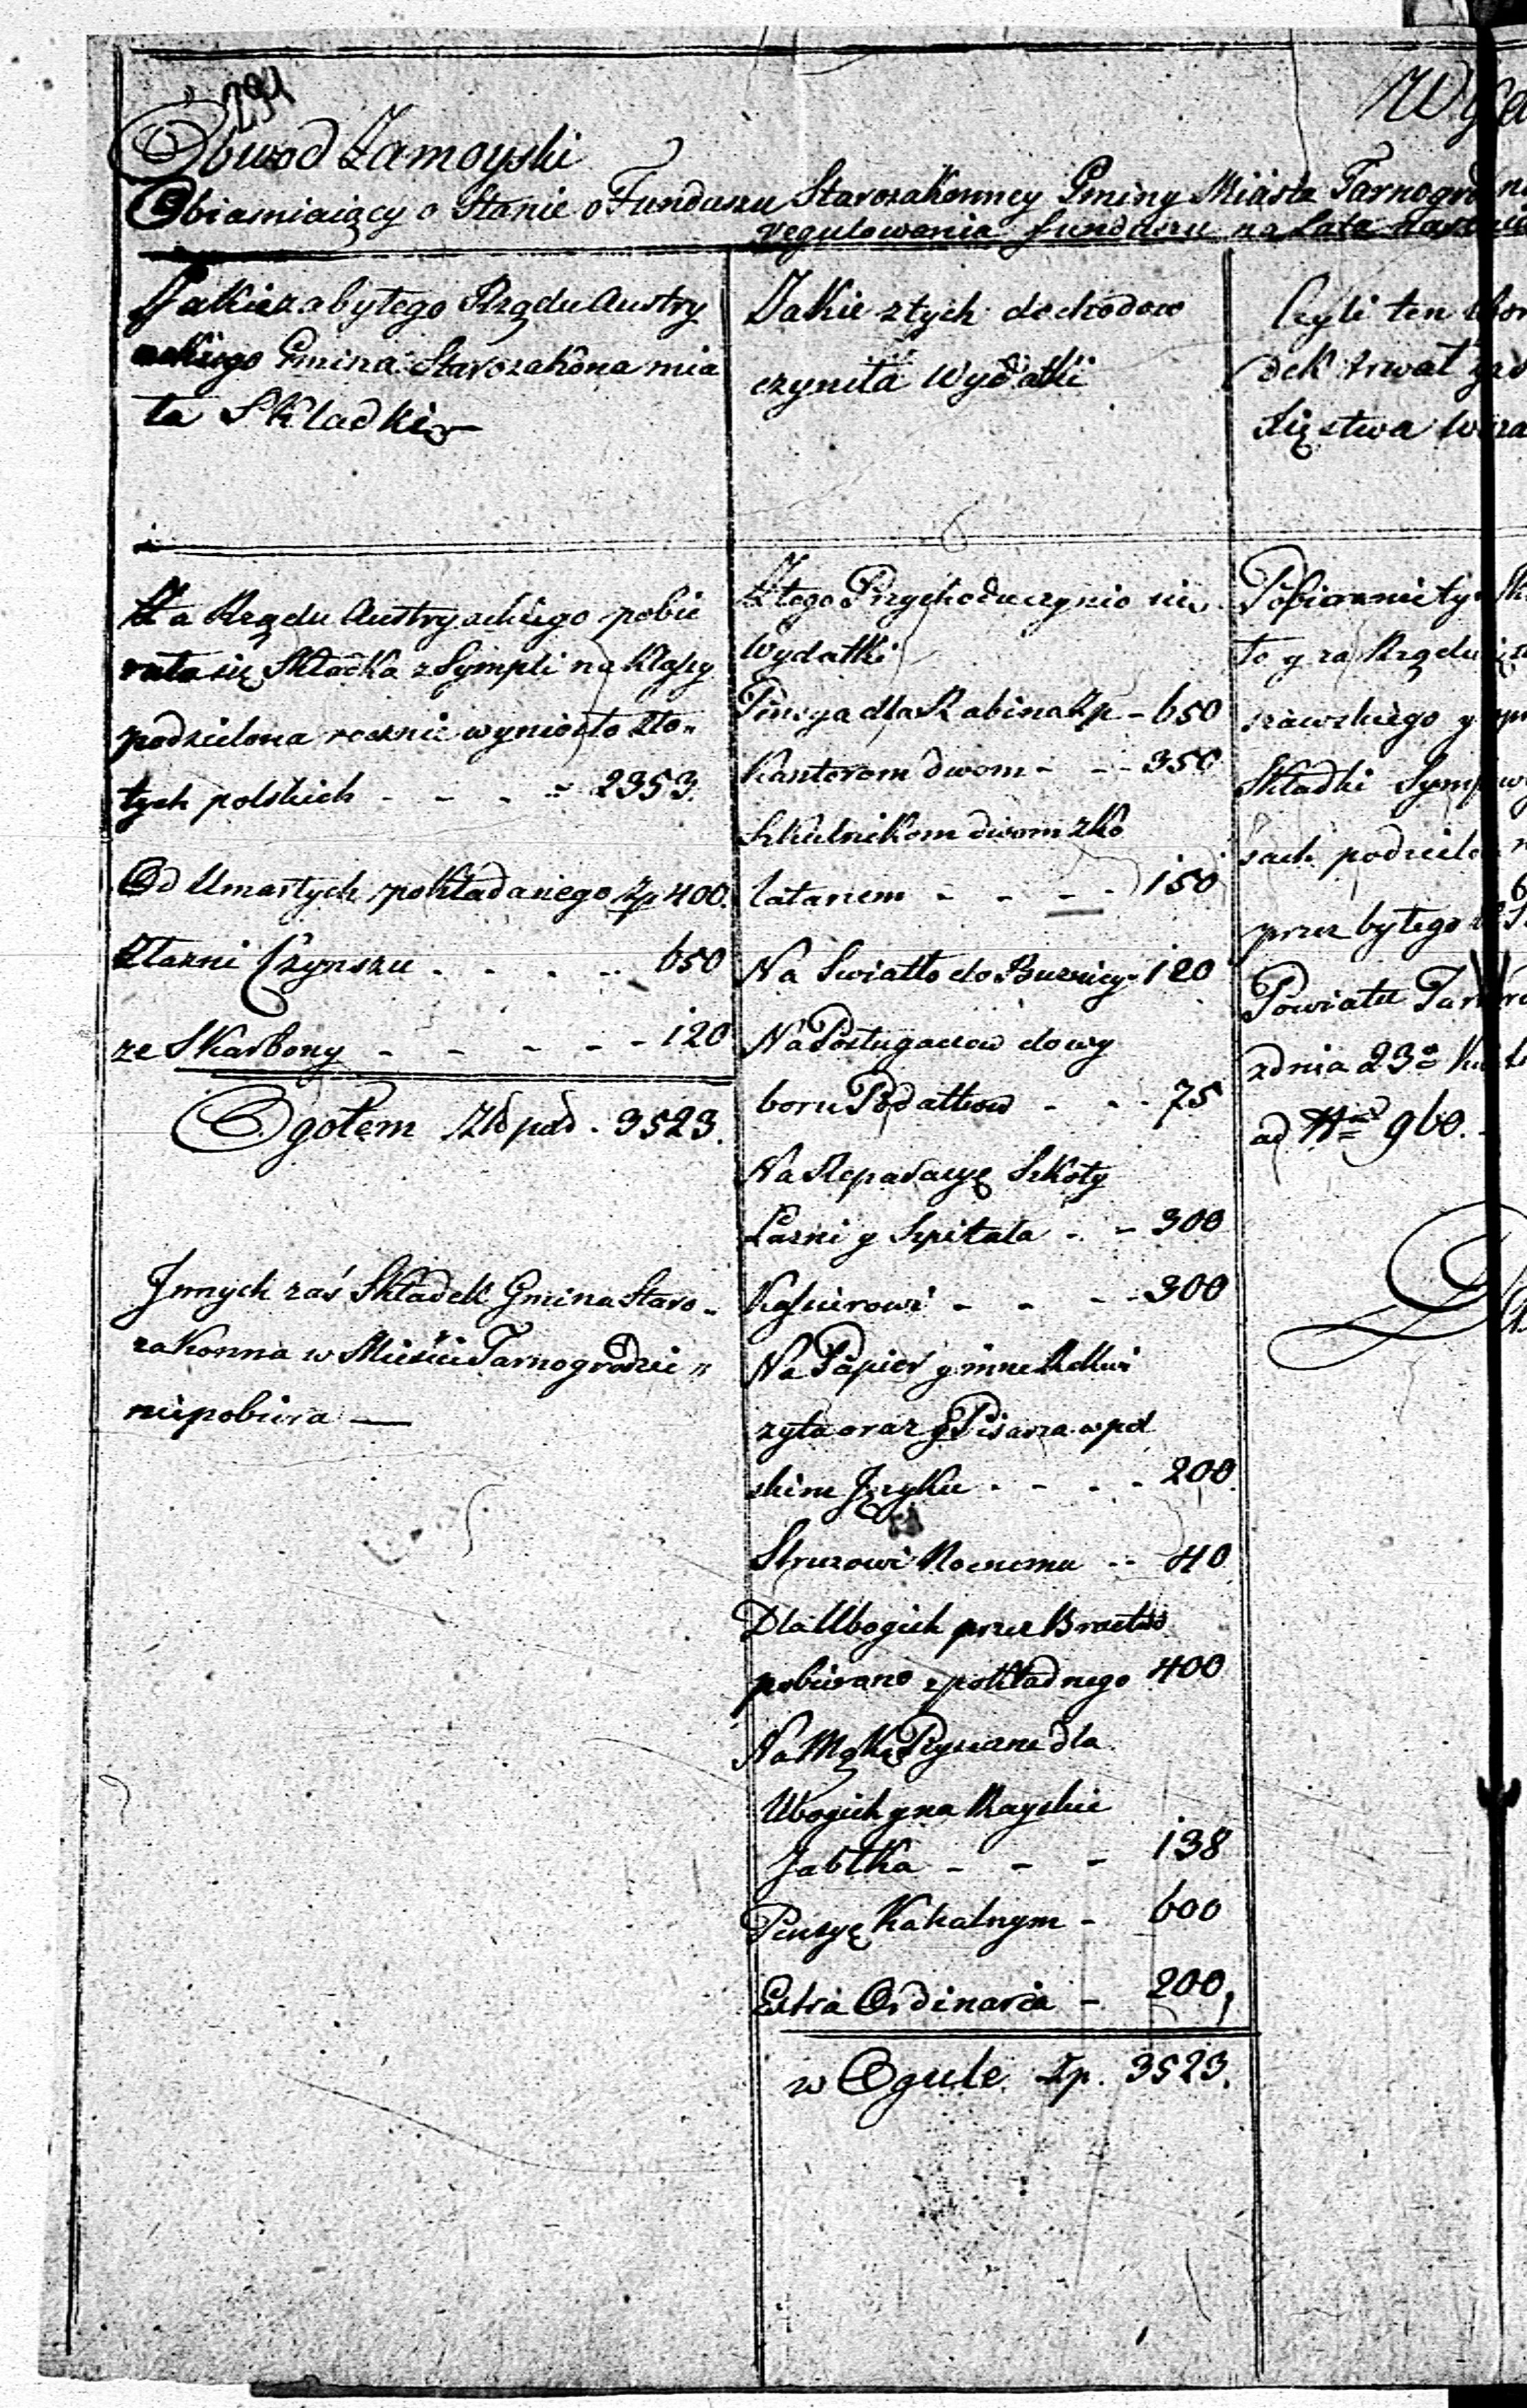 294
Obwod Zamoyski
Obiasniaiący o Stanie o Funduszu Starozakonney Gminy Miasta Tarnogrod
regulowania funduszu na Lata
Jakie za bytego Rządu Austry
ackiego Gmina Starozakona mia
ła Składki
Za Rządu Austryackiego pobie
rała się Składka z Sympli na Klassy
podzielona rocznie wyniosło Zło„
tych polskich - - - - 2353.
Od Umarłych pokładanego Zp 400.
Złazni Czynszu - - - - 650
ze Skarbony - - - - - 120
Ogołem Złł pol - 3523.
Jnnych zaś Składek Gmina Staro„
zakonna w Mieście Tarnogrodzie„
niepobiera —
Jakie z tych dochodow
czyniła Wydatki
Z tego Przychodu czynio się
Wydatki
Pensya dla Rabina Zp - 650
Kantorom dwom - - - 350
Szkulnikom dwom zko
latanem - - - - 150
Na Swiatło do Buznicy - 120
Na Posługaczow do wy
boru Podatkow - - - 75
Na Reparacyę Szkoły
Łazni y Szpitala - - 300
Kassierowi - - - - 300
Na Papier y inne Rekwi
zyta oraz y Pisarza w pol
skim Języku - - - - 200
Struzowi Nocnemu -- 40
Dla Ubogich przez Bractwo
pobierano z pokładnego 400
Na Mąkę Pszenną dla
Ubogich y na Rayskie
Jabłka - - - 138
Pensyę Kahalnym - 600
Extra Ordinaria - 200,
w Ogule Zp. 3523.
Czyli ten
dek trwał
Xięstwa
Pobieranie ty
to y za Rządu
szawskiego y
Składki Symp
sach podziel
przez bytego
Powiatu Tar
z dnia 23º
ad Nrum 960.